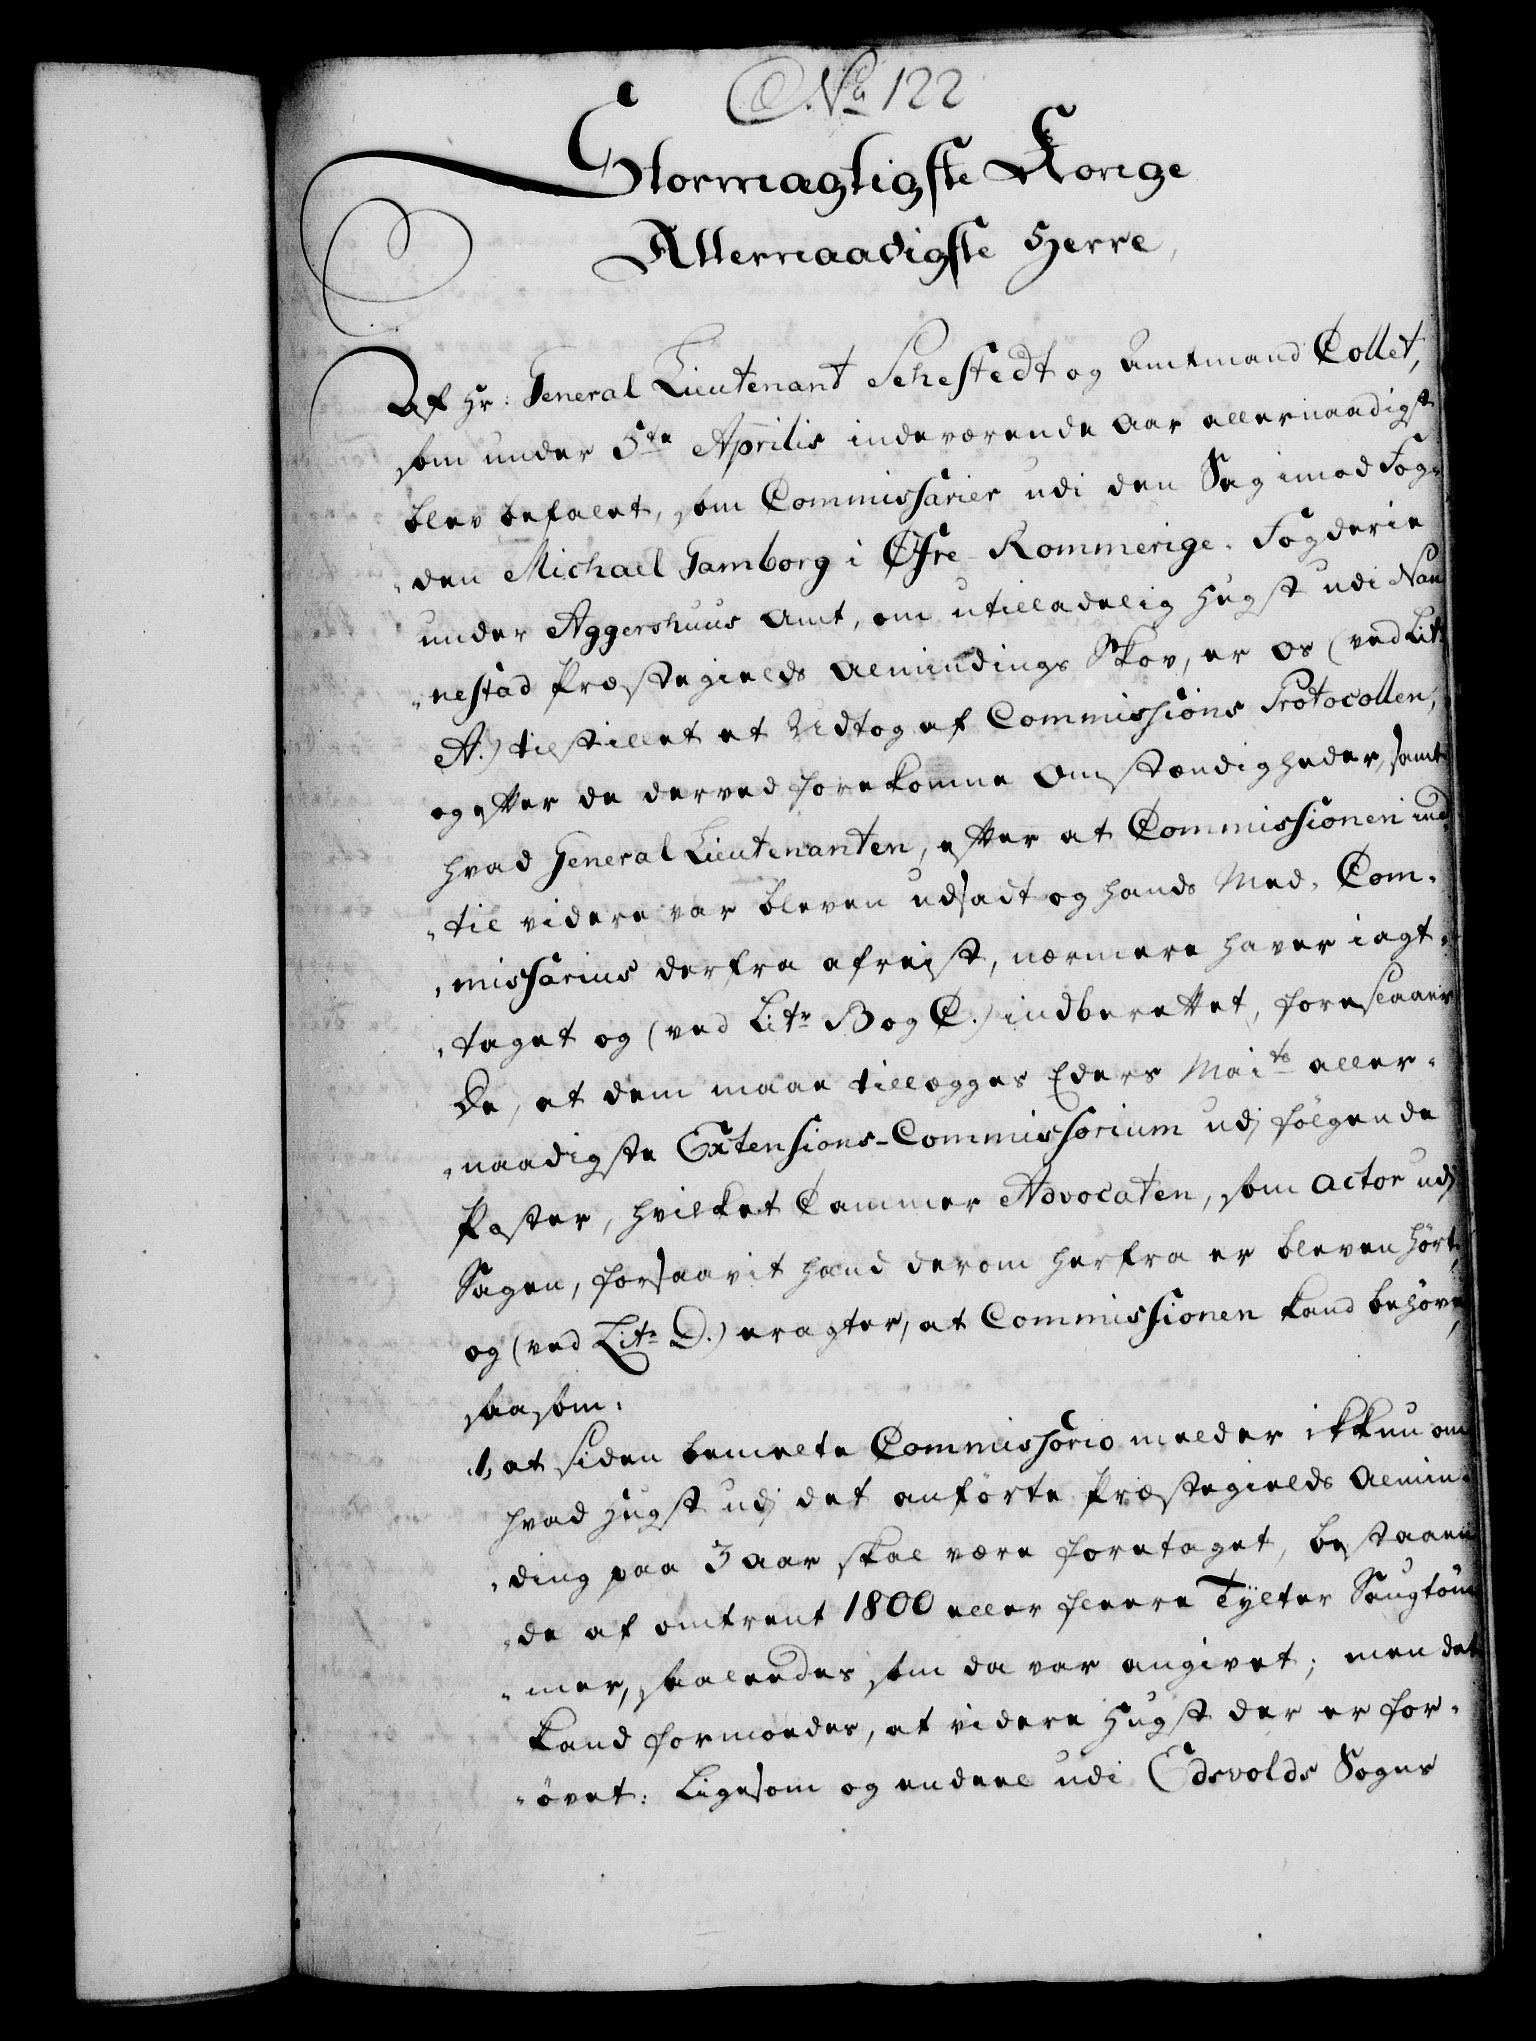 No 122
Stormægtigste Konge
Allernaadigste Herre,
Af Hr: General Lieutenant Sehestedt og Amtmand Collet,
som under 5te Aprilis indeværende Aar allernaadigst
blev befalet, som Commissarier udi den Sag imod Fog-
„den Michael Tamborg i Øfre-Rommerige-Fogderie
under Aggershuus Amt, om utilladelig Hugst udi Nan
„nestad Præstegields Almindings Skov, er os (ved Litr
A.) tilstillet et Udtog af Commissions Protocollen,
og efter de derved forekomne Omstændigheder, samt
hvad General Lieutenanten, efter at Commissionen ind
„til videre var bleven udsadt og hands Med-Com-
„missarius derfra afreist, nærmere haver iagt-
„taget og (ved Litr B og C.) indberettet, foreslaaer
De, at dem maae tillægges Eders Maits aller-
„naadigste Extensions-Commissorium udj følgende
Poster, hvilket Cammer Advocaten, som Actor udj
Sagen, forsaavit hand derom herfra er bleven hørt,
og (ved Litr D.) eragter, at Commissionen kand behøve,
saasom:
1, at siden bemelte Commissorio melder ikkun om
hvad Hugst udj det anførte Præstegields Almin-
„ding paa 3 Aar skal være foretaget, bestaaen
„de af omtrent 1800 eller fleere Tylter Saugtøm
„mer, saaledes som da var angivet; men det
kand formodes, at videre Hugst der er for-
„øvet: Ligesom og endeel udi Edsvolds Sogns